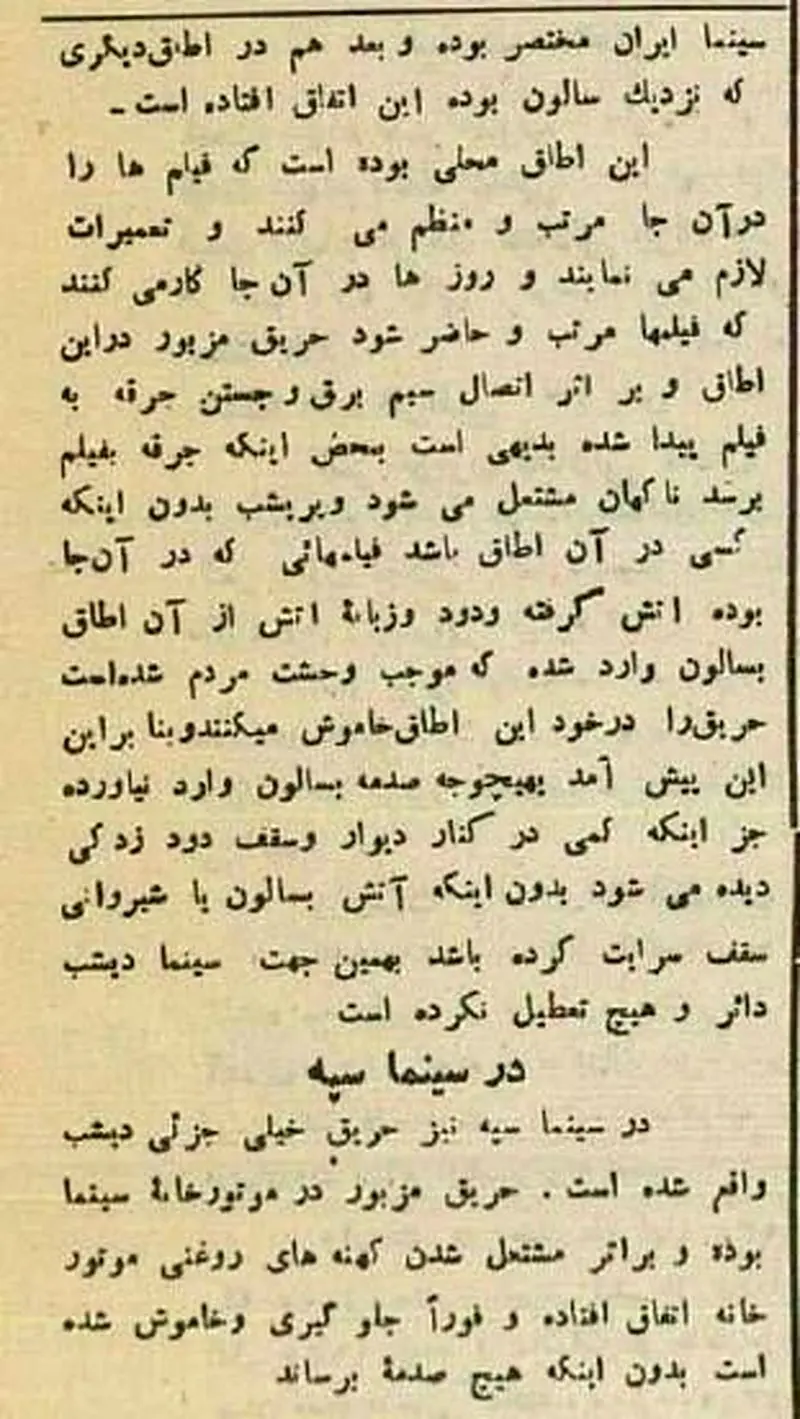 سینما ایران مختصر بوده و بعد هم در اطاق‌دیگری
که نزدیك سالون بوده این اتفاق افتاده است ـ
این اطاق محلی بوده است که فیلم ها را
درآن جا مرتب و منظم می کنند و تعمیرات
لازم می نمایند و روز ها در آن جا کارمی کنند
که فیلمها مرتب و حاضر شود حریق مزبور دراین
اطاق و بر اثر اتصال سیم برق و جستن جرقه به
فیلم پیدا شده بدیهی است بمحض اینکه جرقه بفیلم
برسد ناگهان مشتعل می شود وپریشب بدون اینکه
کسی در آن اطاق باشد فیلمهائی که در آن‌جا
بوده اتش گرفته ودود وزبانهٔ اتش از آن اطاق
بسالون وارد شده که موجب وحشت مردم شده‌است
حریق‌را درخود این اطاق‌خاموش میکنندوبنا براین
این پیش آمد بهیچوجه صدمه بسالون وارد نیاورده
جز اینکه کمی در کنار دیوار وسقف دود زدگی
دیده می شود بدون اینکه آتش بسالون یا شیروانی
سقف سرایت کرده باشد بهمین جهت سینما دیشب
دائر و هیچ تعطیل نکرده است
در سینما سپه
در سینما سپه نیز حریق خیلی جزئی دیشب
واقع شده است . حریق مزبور در موتورخانهٔ سینما
بوده و براثر مشتعل شدن کهنه های روغنی موتور
خانه اتفاق افتاده و فوراً جلو گیری وخاموش شده
است بدون اینکه هیچ صدمهٔ برساند